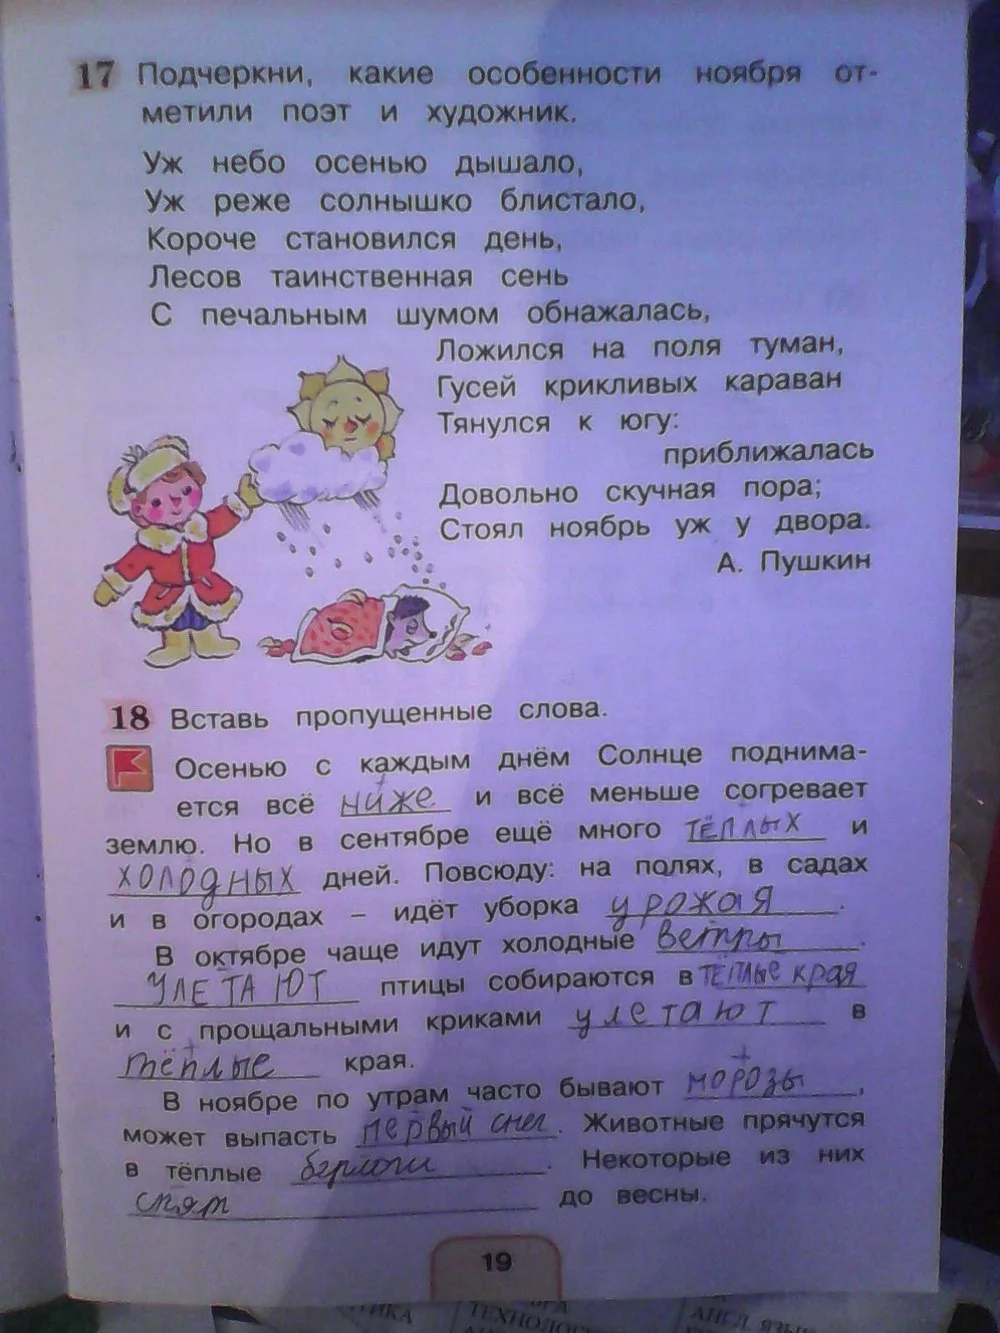 17 Подчеркни, какие особенности ноября от-
метили поэт и художник.
Уж небо осенью дышало,
Уж реже солнышко блистало,
Короче становился день,
Лесов таинственная сень
С печальным шумом обнажалась,
Ложился на поля туман,
Гусей крикливых караван
Тянулся к югу:
приближалась
Довольно скучная пора;
Стоял ноябрь уж у двора.
А. Пушкин
18 Вставь пропущенные слова.
Осенью с каждым днём Солнце поднима-
ется всё ниже и всё меньше согревает
землю. Но в сентябре ещё много тёплых и
холодных дней. Повсюду: на полях, в садах
и в огородах – идёт уборка урожая.
В октябре чаще идут холодные ветры.
УЛЕТАЮТ птицы собираются в тёплые края
и с прощальными криками улетают в
тёплые края.
В ноябре по утрам часто бывают морозы,
может выпасть первый снег. Животные прячутся
в тёплые берлоги. Некоторые из них
спят до весны.
19
ТЕХНОЛОГ
АНГЛ. ЯЗЫ